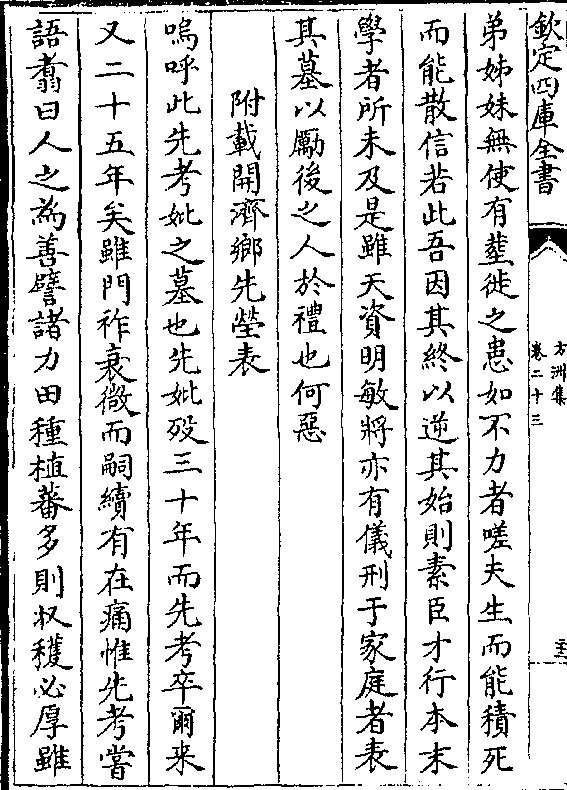 欽定四庫全書
方洲集
卷二十三
弟姊妹無使有塟徙之患如不力者嗟夫生而能積死
而能散信若此吾因其終以逆其始則素臣才行本末
學者所未及是雖天資明敏將亦有儀刑于家庭者表
其墓以勵後之人於禮也何惡
附載開濟鄉先塋表
嗚呼此先考妣之墓也先妣殁三十年而先考卒爾来
又二十五年矣雖門祚衰微而嗣續有在痛惟先考嘗
語翥曰人之為善譬諸力田種植蕃多則收穫必厚雖